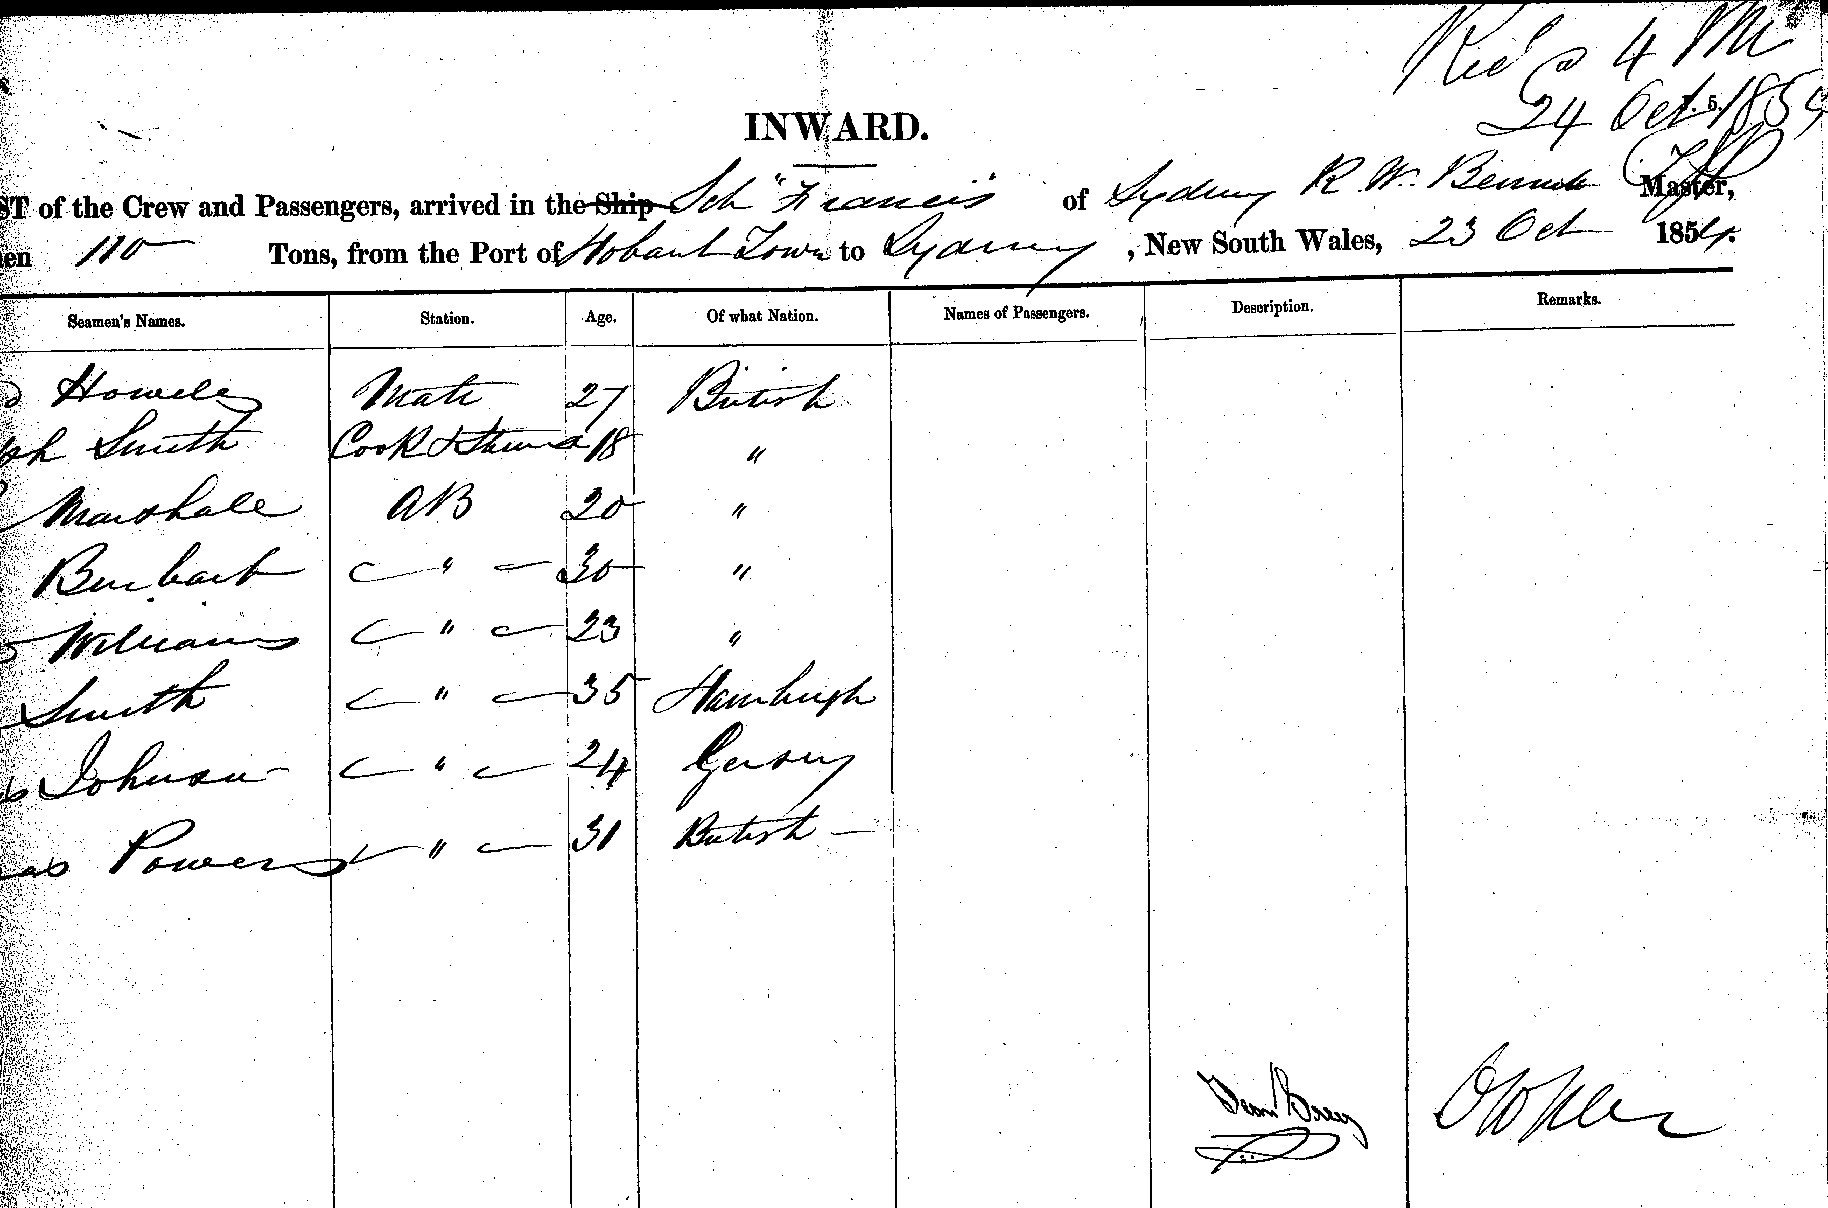 Rec'd @ 4 PM
24 Oct 1854
INWARD.
ST of the Crew and Passengers, arrived in the Ship Sch "Francis" of Sydney R. W. Bennett Master,
en 110 Tons, from the Port of Hobart Town to Sydney, New South Wales, 23 Oct 1854.
Seamen's Names. Station. Age. Of what Nation. Names of Passengers. Description. Remarks.
Howell Mate 27 British
ph Smith Cook & Steward 18 "
Marshall AB 20 "
" 30 "
Williams " 23 "
Smith " 35 Hamburgh
Johnson " 24 Gersey
as Powers " 31 British